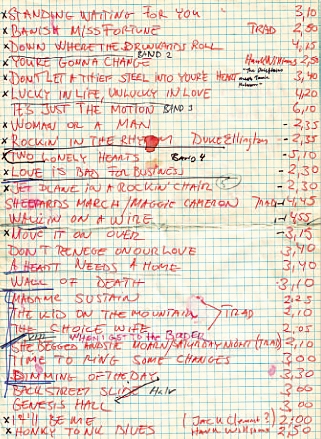 x STANDING WAITING FOR YOU 3,10
x BANISH MISSFORTUNE TRAD - 2,50
x DOWN WHERE THE DRUNKARDS ROLL 4,15
BAND 2
x YOU'RE GONNA CHANGE HANK WILLIAMS 2,50
x DON'T LET A THIEF STEAL INTO YOU'RE HEART 3,40
x LUCKY IN LIFE, UNLUCKY IN LOVE 4,20
IT'S JUST THE MOTION BAND 3 6,10
x WOMAN OR A MAN - 2,35
x ROCKIN' IN THE RHYTHM DUKE Ellington - 2,35
x TWO LONELY HEARTS BAND 4 - 5,10
x LOVE IS BAD FOR BUSINESS - 2,30
x JET PLANE IN A ROCKIN' CHAIR - 2,30
SHEEPARDS MARCH / MAGGIE CAMERON TRAD - 4,45
WALKIN ON A WIRE - 455
x MOVE IT ON OVER - 3,15
DON'T RENEGE ON OUR LOVE 3,40
A HEART NEEDS A HOME 3,40
WALL OF DEATH 3,10
MADAME SUSTAIN 2,25
THE KID ON THE MOUNTAIN TRAD 2,10
THE CHOICE WIFE 2,05
WHEN I GET TO THE BORDER
SHE BEGGED AND SHE MOAN/SATURDAY NIGHT (TRAD) 2,10
TIME TO RING SOME CHANGES 3,00
DIMMING OF THE DAY 3,30
BACKSTREET SLIDE 3,00
GENESIS HALL 3,00
x I'LL BE ME (Jack Clement?) 2,00
x HONKY TONK BLUES HANK Williams 2,50